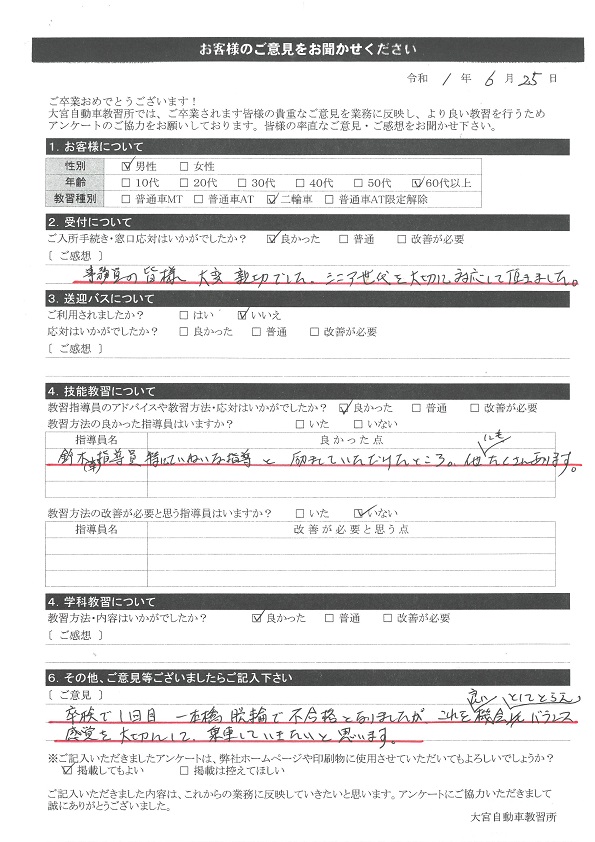 お客様のご意見をお聞かせください
令和 1 年 6 月 25 日
ご卒業おめでとうございます！
大宮自動車教習所では、ご卒業されます皆様の貴重なご意見を業務に反映し、より良い教習を行うため
アンケートのご協力をお願いしております。皆様の率直なご意見・ご感想をお聞かせ下さい。
1. お客様について
性別 ☑男性 □女性
年齢 □10代 □20代 □30代 □40代 □50代 ☑60代以上
教習種別 □普通車MT □普通車AT ☑二輪車 □普通車AT限定解除
2. 受付について
ご入所手続き・窓口応対はいかがでしたか？ ☑良かった □普通 □改善が必要
〔 ご感想 〕
事務員の皆様 大変 親切でした。シニア世代を大切に対応して頂きました。
3. 送迎バスについて
ご利用されましたか？ □はい ☑いいえ
応対はいかがでしたか？ □良かった □普通 □改善が必要
〔 ご感想 〕
4. 技能教習について
教習指導員のアドバイスや教習方法・応対はいかがでしたか？ ☑良かった □普通 □改善が必要
教習方法の良かった指導員はいますか？ □いた □いない
指導員名 良かった点
鈴木指導員 特にていねいな指導と 励ましていただけたところ。他にもたくさんあります。
教習方法の改善が必要と思う指導員はいますか？ □いた ☑いない
指導員名 改善が必要と思う点
4. 学科教習について
教習方法・内容はいかがでしたか？ ☑良かった □普通 □改善が必要
〔 ご感想 〕
6. その他、ご意見等ございましたらご記入下さい
〔 ご意見 〕
卒検で1回目 一本橋 脱輪で不合格となりましたが これを良い機会としてとらえ、バランス
感覚を大切にして、乗車していきたいと思います。
※ご記入いただきましたアンケートは、弊社ホームページや印刷物に使用させていただいてもよろしいでしょうか？
☑掲載してもよい □掲載は控えてほしい
ご記入いただきました内容は、これからの業務に反映していきたいと思います。アンケートにご協力いただきまして
誠にありがとうございました。
大宮自動車教習所